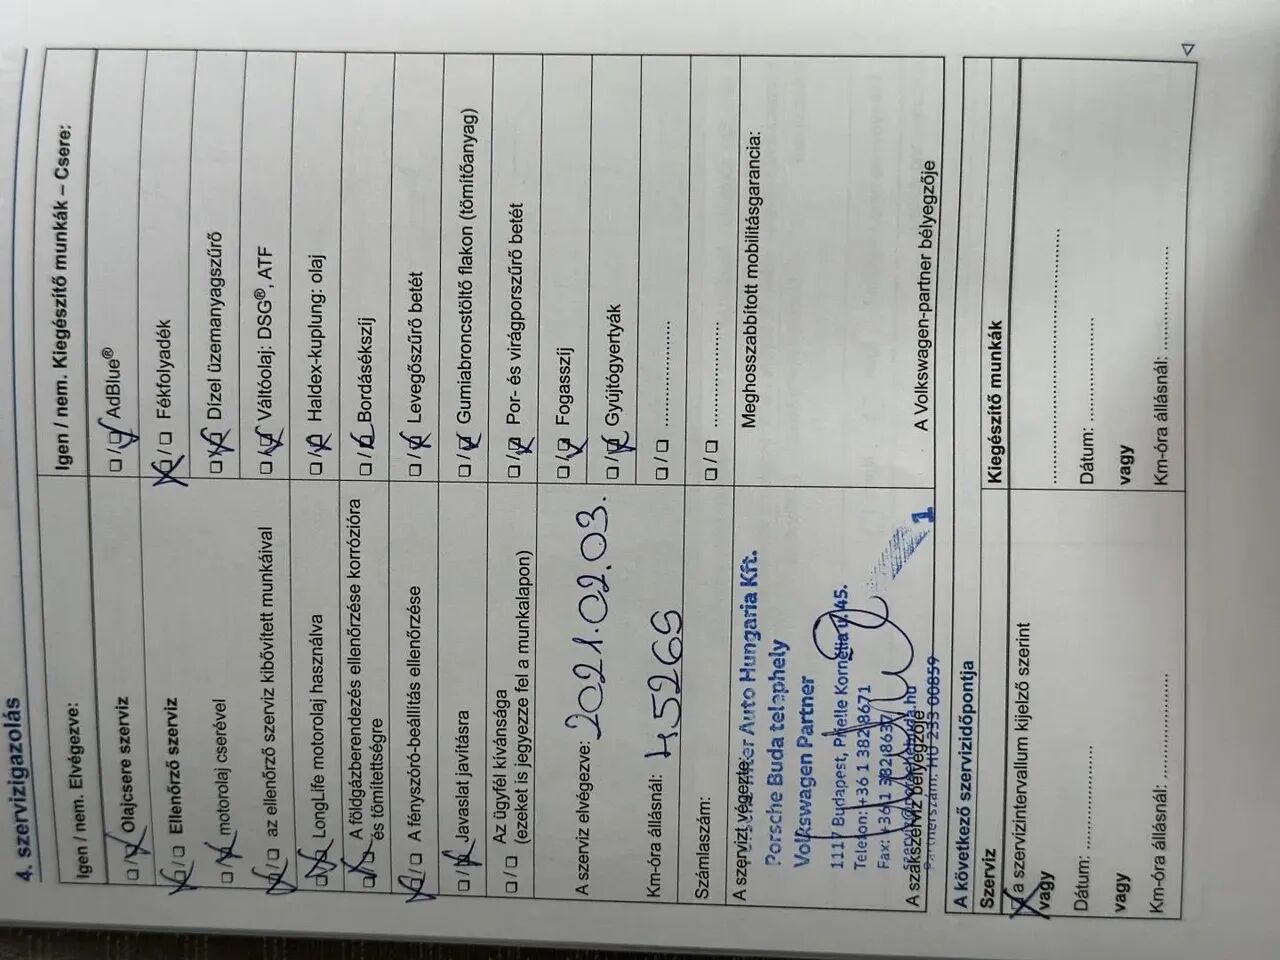 4. szervizigazolás
Igen / nem. Elvégezve:
Olajcsere szerviz
Ellenőrző szerviz
motorolaj cserével
az ellenőrző szerviz kibővített munkáival
LongLife motorolaj használva
A földgázberendezés ellenőrzése korrózióra
és tömítettségre
A fényszóró-beállítás ellenőrzése
Javaslat javításra
Az ügyfél kívánsága
(ezeket is jegyezze fel a munkalapon)
A szerviz elvégezve: 2021.02.03.
Km-óra állásnál: 45269
Számlaszám:
A szervizt végezte:
Auto Hungaria Kft.
Porsche Buda telephely
Volkswagen Partner
1117 Budapest, Prielle Kornélia u. 45.
Telefon: +36 1 382 8671
Fax: +36 1 382 863
A szakszerviz bélyegzője
Partnerszám: HU 233 00859
1
Igen / nem. Kiegészítő munkák – Csere:
AdBlue®
Fékfolyadék
Dízel üzemanyagszűrő
Váltóolaj: DSG®, ATF
Haldex-kuplung: olaj
Bordásékszíj
Levegőszűrő betét
Gumiabroncstöltő flakon (tömítőanyag)
Por- és virágporszűrő betét
Fogasszíj
Gyújtógyertyák
....................
....................
Meghosszabbított mobilitásgarancia:
A Volkswagen-partner bélyegzője
A következő szervizidőpontja
Szerviz
a szervizintervallum kijelző szerint
vagy
Dátum: ....................
vagy
Km-óra állásnál: ....................
Kiegészítő munkák
........................................
Dátum: ....................
vagy
Km-óra állásnál: ....................